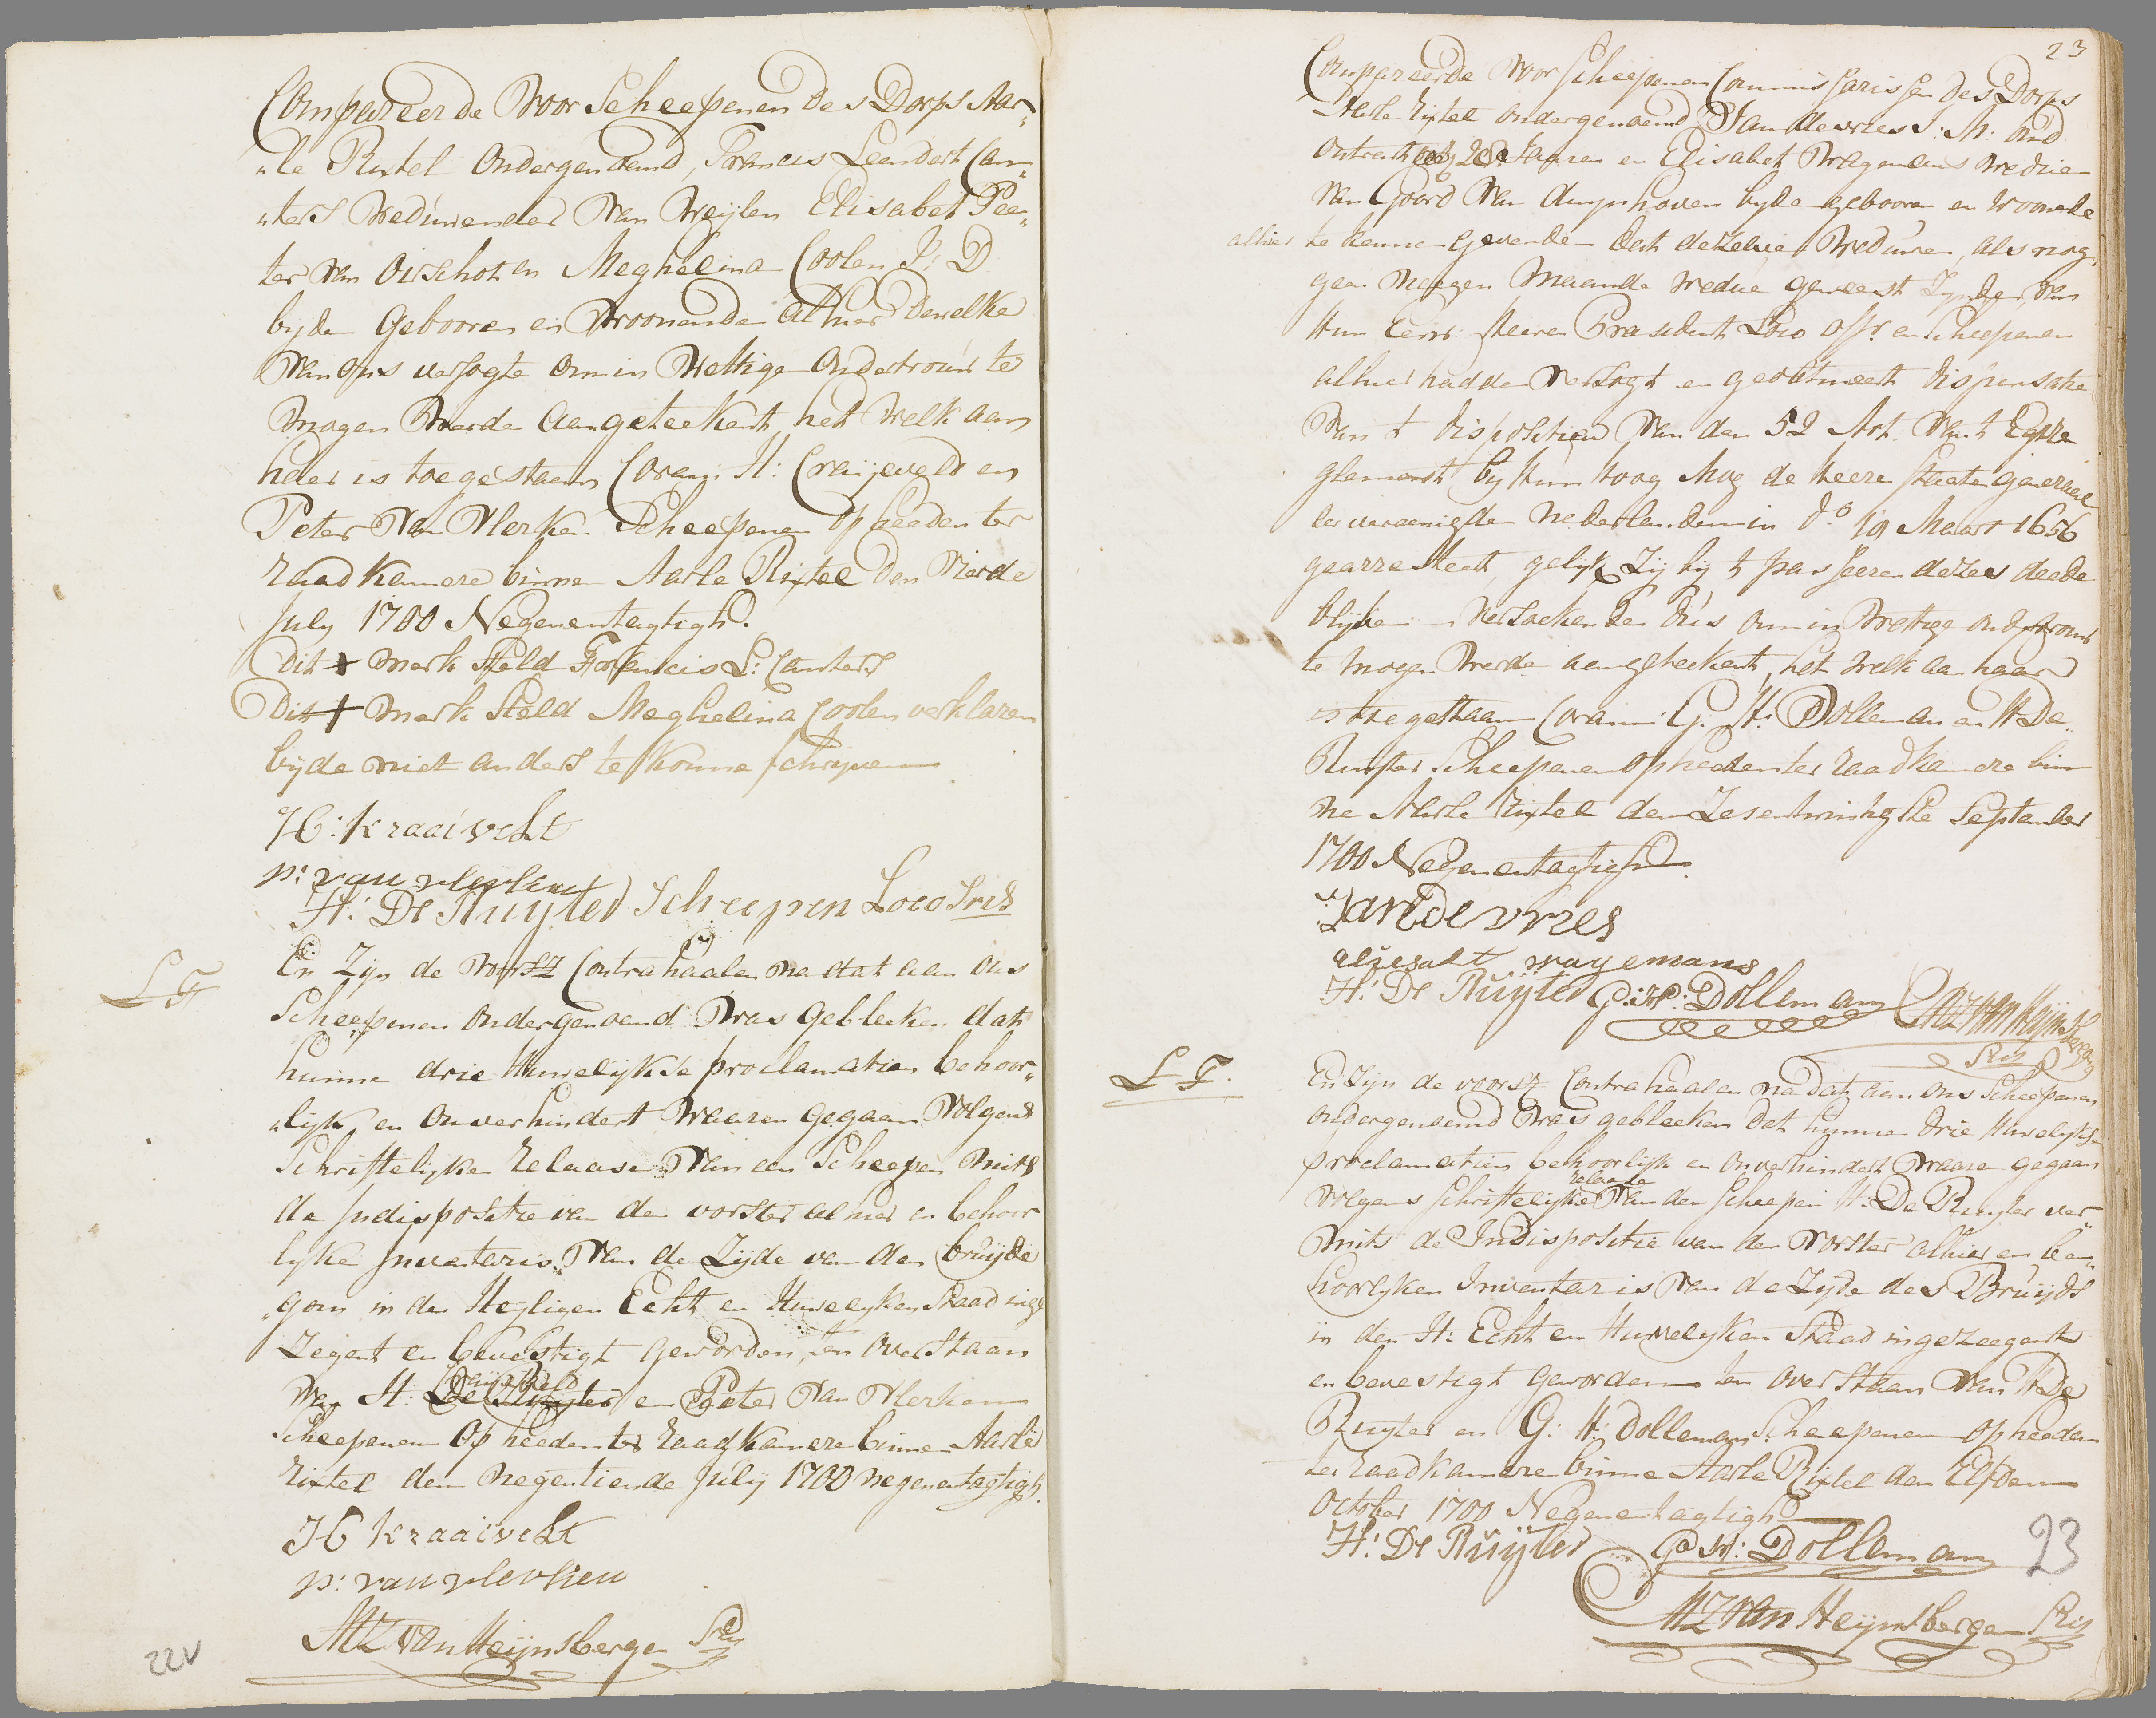 Compareerde Voor Scheepenen des Dorps Aar„
„le Rixtel Ondergenoemd, Francis Leendert Can„
„ters Weduwenaer Van Weylen Elisabet Pee„
ter Van Oirschot en Meghelina Coolen J: D
byde Gebooren en Woonende Alhier dewelke
Van ons versogte om in Wettige Ondertrouw te
Mogen Werde Aangeteekent, het Welk aan
heder is toegestaan Coram H: Craijeveld en
Peter Van Vlerken Scheepenen op heeden ter
Raadkamere binne Aarle Rixtel Den Vierde
July 1700 Negenentagtigh.
Dit + Merk Steld Francis L: Canters
Dit + Merk Steld Meghelina Coolen verklaren
byde niet anders te konne schryven
H: kraaivelt
p: van vlerken
H: De Ruyter Scheepen Loco Sris
L T
En Zyn de Voorsz Contrahaalen na dat aan Ons
Scheepenen Ondergenoemd Was Gebleeken dat
hunne drie Huwelykse proclamatien behoor„
„lyk en Onverhindert Waaren Gegaan Volgens
Schriftelyken Relaase Van een Scheepen Mits
de Indispositie van den vorster alhier en behoor
lyken Inventaris Van de Zyde van den bruyde
„gom in den Heyligen Echt en Huwelyken Staad inge
Zegent en bevestigt Geworden, ten Overstaan
Craijeveld
Van H: De Ruyter en Peter Van Vlerken
Scheepenen Op heeden ter Raadkamere binnen Aarle
Rixtel den Negentiende July 1700 negenentagtigh.
H kraaivelt
p: van vlerken
MZ van Heijnsbergen Sris
22V
23
Compareerde Voor Scheepenen Commissarissen des Dorps
Aerle Rixtel ondergenoemd Jan de vries J: M: oud
Ontrent 26 Jaaren en Elisabet Wagemans Weduwe
Van Goord Van duynhoven byde gebooren en Woonende
alhier te kenne Gevende dat dezelve Weduwe, als nog
geen Neegen Maande Wedue geweest Zynde, Van
Hun Eerw: Heeren President Loco Offr. en Scheepenen
alhier hadden Versogt en geobtineert dispensatie
Van t dispositien Van den 52 Art. Van t Egtre
glement by Hun Hoog Mog de Heere Staten generael
der vereenigden Nederlanden in do 19 Maart 1656
gearresteert, gelyk Zij bij t passeeren dezes deede
blyken Versoekende dus om in Wettige ondertrouw
te Mogen Werde aangeteekent, het Welk aan haar
is toegestaan Coram G: H: Dolleman en H De
Ruyter Scheepenen op heeden ter Raadkamere bin
ne Aerle Rixtel den Zesentwintigste September
1700 Negenentagtigh.
Jan de vries
eliesabt wagemans
H: De Ruijter G: H: Dolleman MZ van Heijnsbergen
Sris
L T.
En Zyn de voorsz Contrahaalen na dat aan Ons Scheepenen
Ondergenoemd Was gebleeken Dat hunne Drie Huwelykse
proclamatien behoorlyk en Onverhindert Waaren gegaan
relaase
Volgens Schriftelyke Van den Scheepen H: De Ruyter ver„
Mits de Indispositie van den Vorster alhier en be„
hoorlyken Inventaris Van de Zyde des Bruyds
in den H: Echt en Huwelyken Staad ingezeegent
en bevestigt Geworden ten Overstaan Van H De
Ruyter en G: H: Dolleman Scheepenen op heeden
ter Raadkamere binne Aarle Rixtel den Elfden
October 1700 Negenentagtigh
H: De Ruijter G H: Dolleman
MZ van Heijnsbergen Sris
23